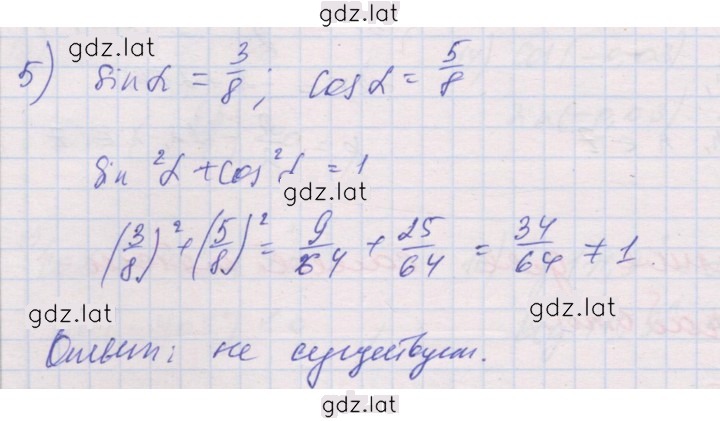 gdz.lat
gdz.lat
5) sin α = 3/8; cos α = 5/8
sin²α + cos²α = 1
gdz.lat
(3/8)² + (5/8)² = 9/64 + 25/64 = 34/64 ≠ 1.
gdz.lat
gdz.lat
Ответ: не существует.
gdz.lat